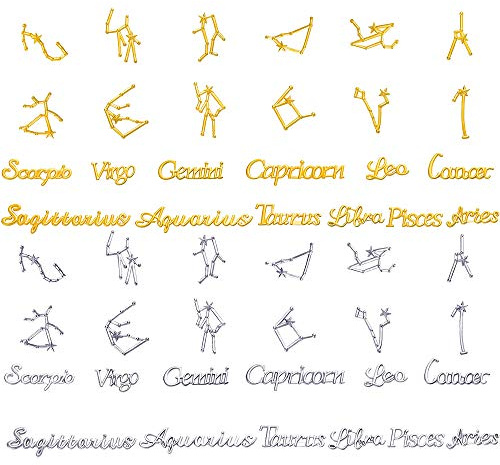 Scorpio Virgo Gemini Capricorn Leo Cancer
Sagittarius Aquarius Taurus Libra Pisces Aries
Scorpio Virgo Gemini Capricorn Leo Cancer
Sagittarius Aquarius Taurus Libra Pisces Aries